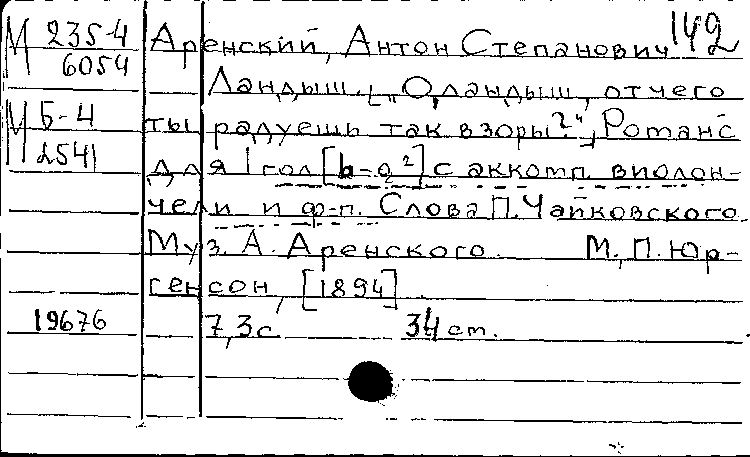 М 235-4
6054
М Б-4
2541
19676
142
Аренский, Антон Степанович
Ландыш. [„О, ландыш, отчего
ты радуешь так взоры?“], Романс
для 1 гол [h-g²] с аккомп. виолон-
чели и ф-п. Слова П. Чайковского.
Муз. А. Аренского. М., П. Юр-
генсон, [1894].
7,3с 34 cm.